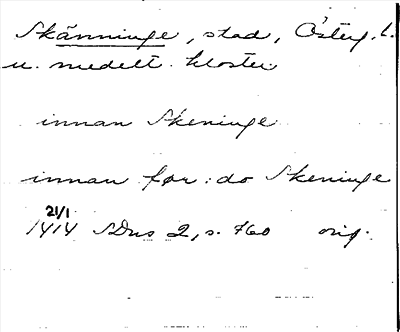 Skänninge, stad, Österg. L.
u. medelt. kloster
innan Skeninge
innan för: do Skeninge
21/1
1414 SDns 2, s. 760 orig.